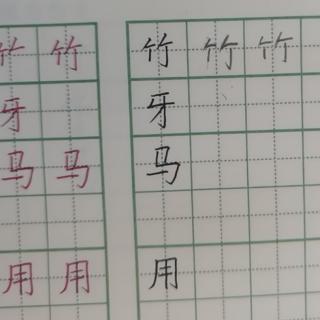 竹 竹 竹 竹 竹
牙 牙
马 马 马
用 用 用